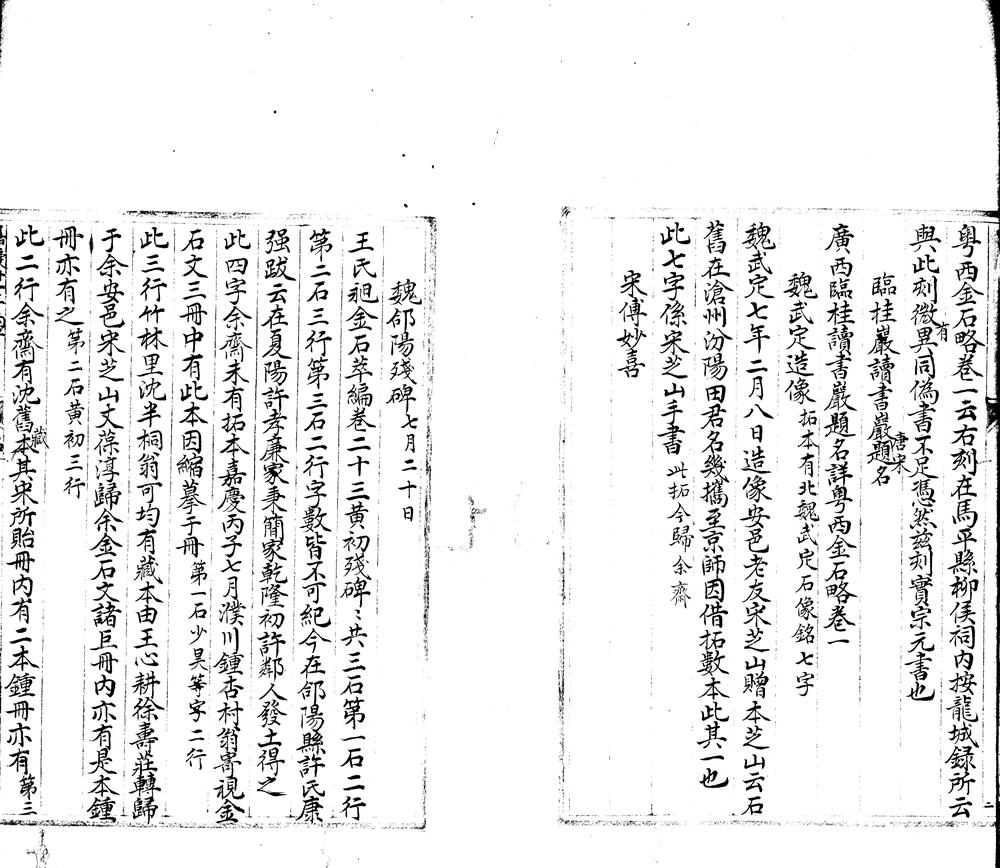 粤西金石略卷一云右刻在馬平縣柳侯祠内按龍城録所云
與此刻微有異同偽書不足憑然茲刻實宗元書也
臨桂巖讀書巖唐宋題名
廣西臨桂讀書巖題名詳粤西金石略卷一
魏武定造像 拓本有北魏武定石像銘七字
魏武定七年二月八日造像安邑老友宋芝山贈本芝山云石
舊在滄州汾陽田君名幾攜至京師因借拓數本此其一也
此七字係宋芝山手書 此拓今歸余齋
宋傅妙喜
魏郃陽殘碑 七月二十日
王氏昶金石萃編卷二十三黃初殘碑〻共三石第一石二行
第二石三行第三石二行字數皆不可紀今在郃陽縣許氏康
强跋云在夏陽許孝廉家秉簡家乾隆初許鄰人發土得之
此四字余齋未有拓本嘉慶丙子七月濮川鍾杏村翁寄視金
石文三冊中有此本因縮摹于冊 第一石少昊等字二行
此三行竹林里沈半桐翁可均有藏本由王心耕徐壽莊轉歸
于余安邑宋芝山丈葆淳歸余金石文諸巨冊内亦有是本鍾
冊亦有之 第二石黃初三行
此二行余齋有沈舊藏本其宋所貽冊内有二本鍾冊亦有 第三